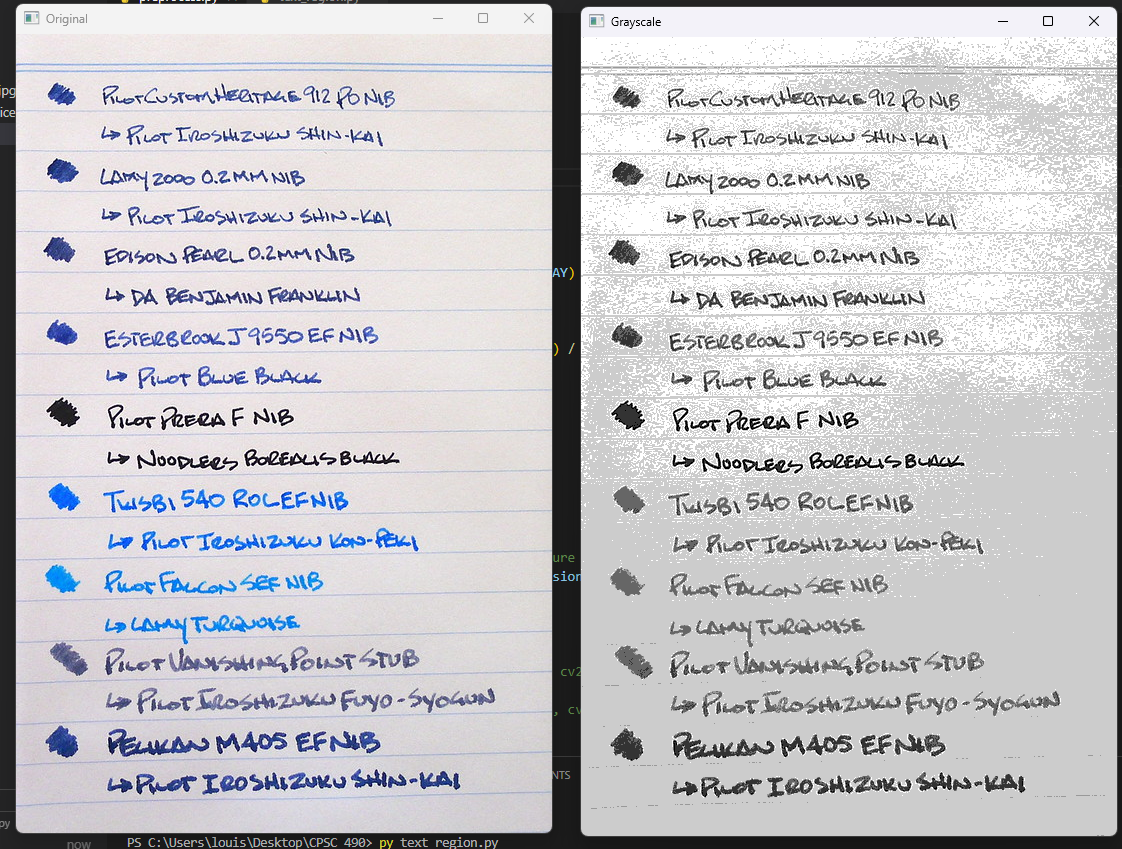 preprocess.py
text_region.py
Original
Grayscale
jpg
ice
PILOT CUSTOM HERITAGE 912 PO NIB
↳ PILOT IROSHIZUKU SHIN-KAI
LAMY 2000 0.2MM NIB
↳ PILOT IROSHIZUKU SHIN-KAI
EDISON PEARL 0.2MM NIB
↳ DA BENJAMIN FRANKLIN
ESTERBROOK J 9550 EF NIB
↳ PILOT BLUE BLACK
PILOT PRERA F NIB
↳ NOODLERS BOREALIS BLACK
TWSBI 540 ROC EF NIB
↳ PILOT IROSHIZUKU KON-PEKI
PILOT FALCON SEF NIB
↳ LAMY TURQUOISE
PILOT VANISHING POINT STUB
↳ PILOT IROSHIZUKU FUYO-SYOGUN
PELIKAN M405 EF NIB
↳ PILOT IROSHIZUKU SHIN-KAI
AY)
) /
ure
sion
cv2
, cv
NTS
PILOT CUSTOM HERITAGE 912 PO NIB
↳ PILOT IROSHIZUKU SHIN-KAI
LAMY 2000 0.2MM NIB
↳ PILOT IROSHIZUKU SHIN-KAI
EDISON PEARL 0.2MM NIB
↳ DA BENJAMIN FRANKLIN
ESTERBROOK J 9550 EF NIB
↳ PILOT BLUE BLACK
PILOT PRERA F NIB
↳ NOODLERS BOREALIS BLACK
TWSBI 540 ROC EF NIB
↳ PILOT IROSHIZUKU KON-PEKI
PILOT FALCON SEF NIB
↳ LAMY TURQUOISE
PILOT VANISHING POINT STUB
↳ PILOT IROSHIZUKU FUYO-SYOGUN
PELIKAN M405 EF NIB
↳ PILOT IROSHIZUKU SHIN-KAI
py
now
PS C:\Users\louis\Desktop\CPSC 490> py text_region.py